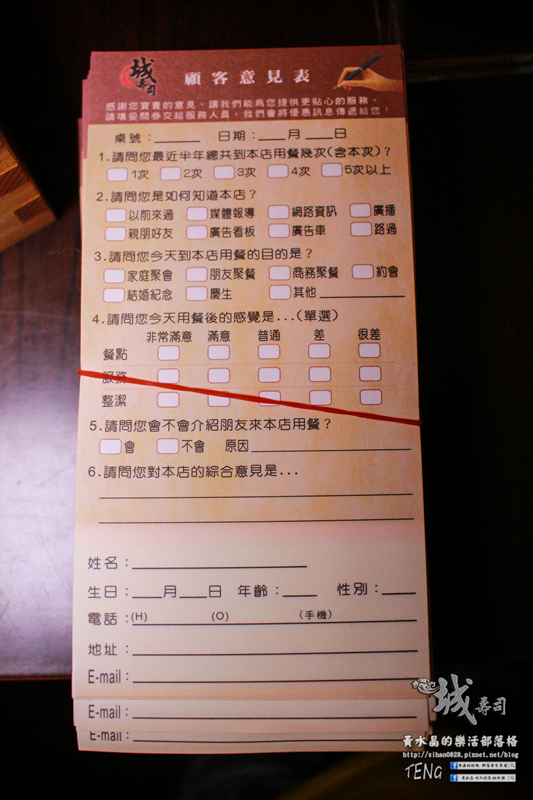 城
壽司
顧客意見表
感謝您寶貴的意見，讓我們能為您提供更貼心的服務。
請填妥問券交給服務人員，我們會將優惠訊息傳遞給您！
桌號：_____ 日期：____月____日
1.請問您最近半年總共到本店用餐幾次(含本次)？
1次 2次 3次 4次 5次以上
2.請問您是如何知道本店？
以前來過 媒體報導 網路資訊 廣播
親朋好友 廣告看板 廣告車 路過
3.請問您今天到本店用餐的目的是？
家庭聚會 朋友聚餐 商務聚餐 約會
結婚紀念 慶生 其他__________
4.請問您今天用餐後的感覺是...(單選)
非常滿意 滿意 普通 差 很差
餐點
服務
整潔
5.請問您會不會介紹朋友來本店用餐？
會 不會 原因__________
6.請問您對本店的綜合意見是...
姓名：__________
生日：____月____日 年齡：____ 性別：____
電話：(H) (O) (手機)
地址：__________
E-mail：__________
E-mail：__________
E-mail：__________
城壽司
黃水晶的樂活部落格
http://sihan0828.pixnet.net/blog
TENG